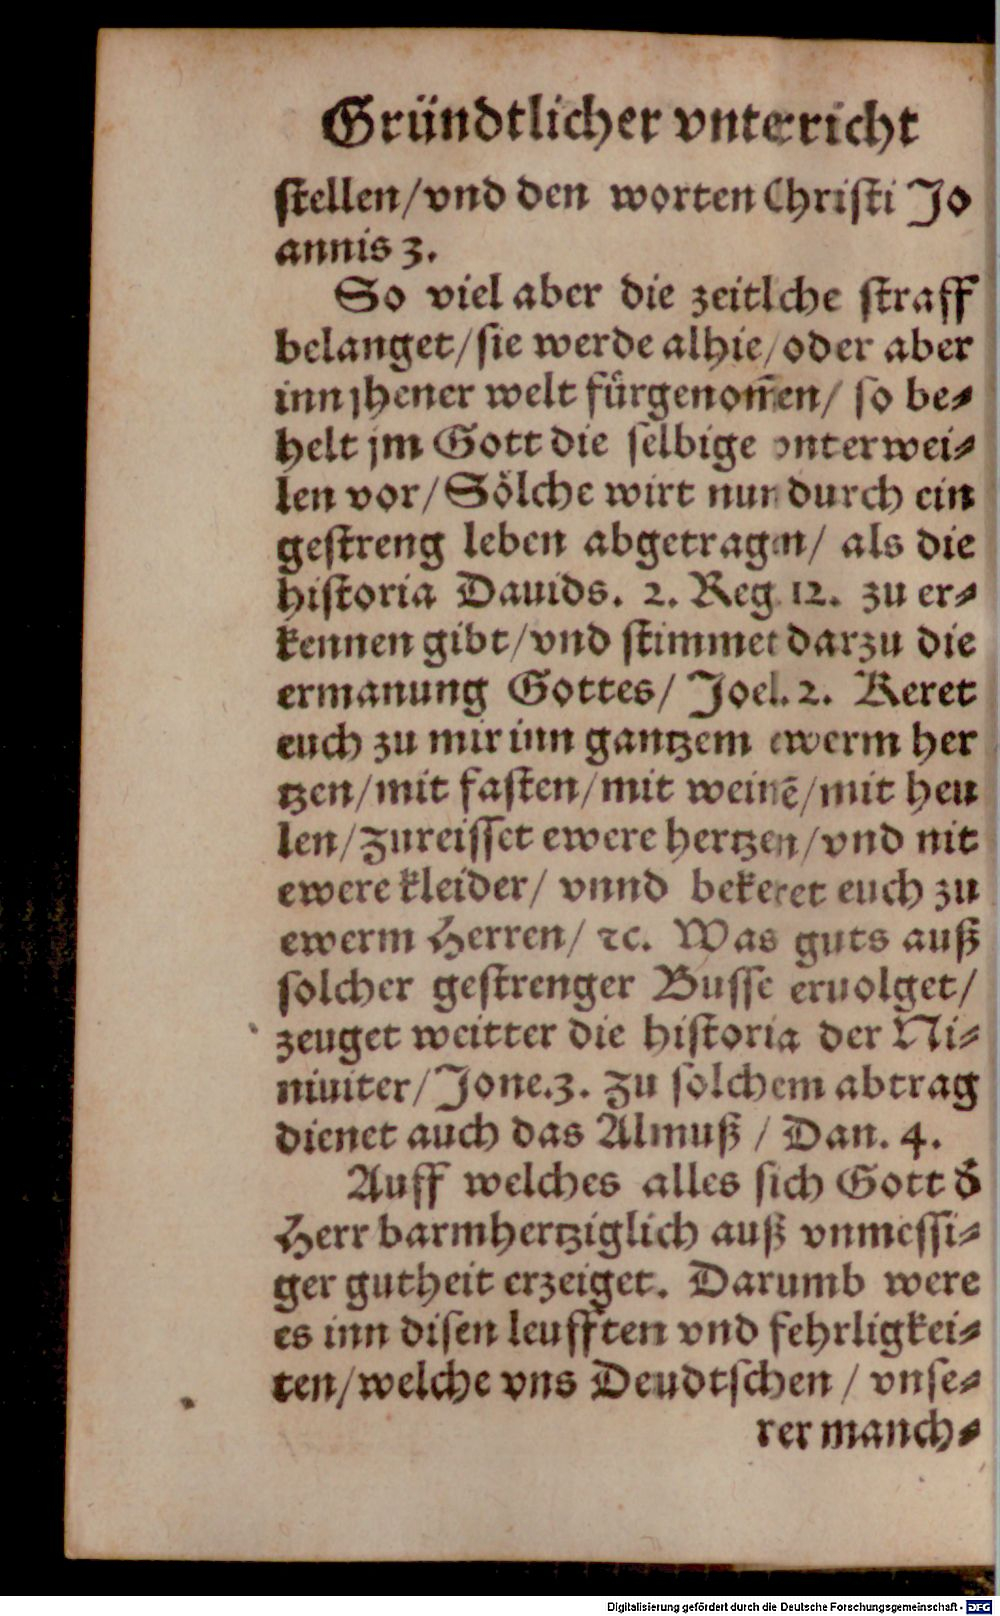 Gründtlicher vnterricht
stellen/vnd den worten Christi Jo
annis 3.
So viel aber die zeitlche straff
belanget/sie werde alhie/oder aber
inn jhener welt fürgenom̃en/ so be-
helt jm Gott die selbige vnterwei-
len vor/Sölche wirt nur durch ein
gestreng leben abgetragen/ als die
historia Dauids. 2. Reg. 12. zu er-
kennen gibt/vnd stimmet darzu die
ermanung Gottes/ Joel. 2. Keret
euch zu mir inn gantzem ewerm her
tzen/mit fasten/mit weinē/mit heu
len/zureisset ewere hertzen/vnd nit
ewere kleider/ vnnd bekeret euch zu
ewerm Herren/ ꝛc. Was guts auß
solcher gestrenger Busse eruolget/
zeuget weitter die historia der Ni-
niuiter/Jone.3. zu solchem abtrag
dienet auch das Almuß / Dan. 4.
Auff welches alles sich Gott d̕
Herr barmhertziglich auß vnmessi-
ger gutheit erzeiget. Darumb were
es inn disen leufften vnd fehrligkei-
ten/welche vns Deudtschen / vnse-
rer manch-
Digitalisierung gefördert durch die Deutsche Forschungsgemeinschaft - DFG